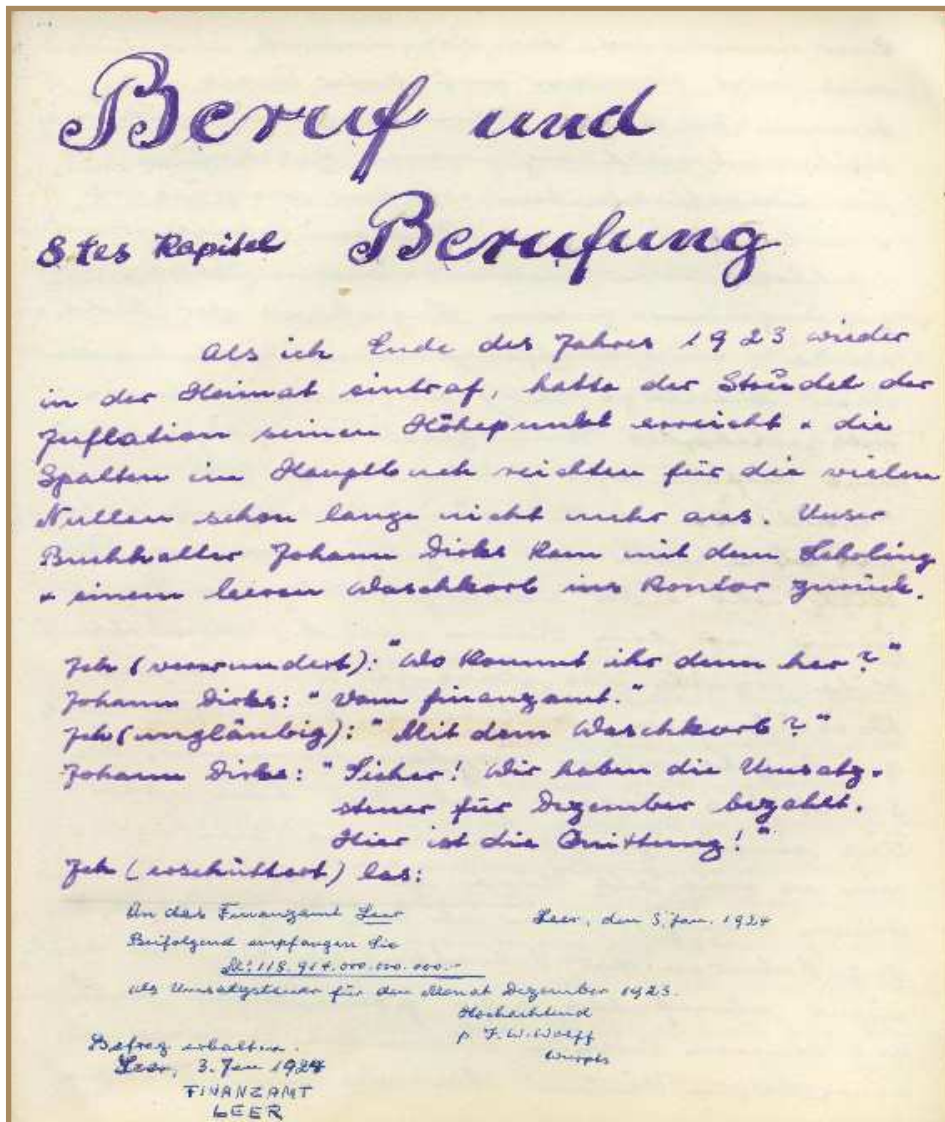 Beruf und
8tes Kapitel Berufung
Als ich Ende des Jahres 1923 wieder
in der Heimat eintraf, hatte der Strudel der
Inflation seinen Höhepunkt erreicht & die
Spalten im Hauptbuch reichten für die vielen
Nullen schon lange nicht mehr aus. Unser
Buchhalter Johann Dirks kam mit dem Lehrling
& einem leeren Waschkorb ins Kontor zurück.
Ich (verwundert): "Wo kommt ihr denn her?"
Johann Dirks: "Vom Finanzamt."
Ich (ungläubig): "Mit dem Waschkorb?"
Johann Dirks: "Sicher! Wir haben die Umsatz-
steuer für Dezember bezahlt.
Hier ist die Quittung!"
Ich (erschüttert) las:
An das Finanzamt Leer Leer, den 3. Jan. 1924
Beifolgend empfangen Sie
M: 118.914.000.000.000.-
als Umsatzsteuer für den Monat Dezember 1923.
Hochachtend
p. F.W. Wolff
Betrag erhalten.
Leer, 3. Jan 1924
FINANZAMT
LEER